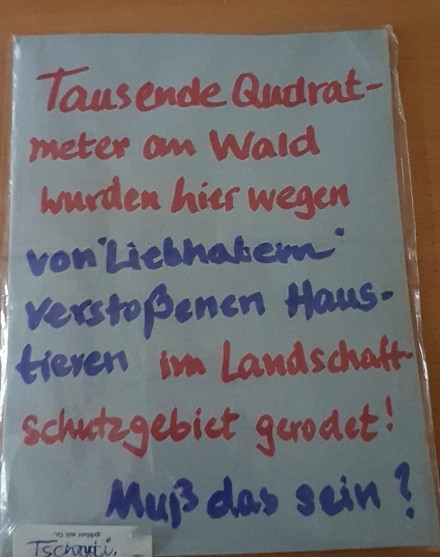 Tausende Qudrat-
meter an Wald
wurden hier wegen
von "Liebhabern"
verstoßenen Haus-
tieren im Landschaft-
schutzgebiet gerodet!
Muß das sein?